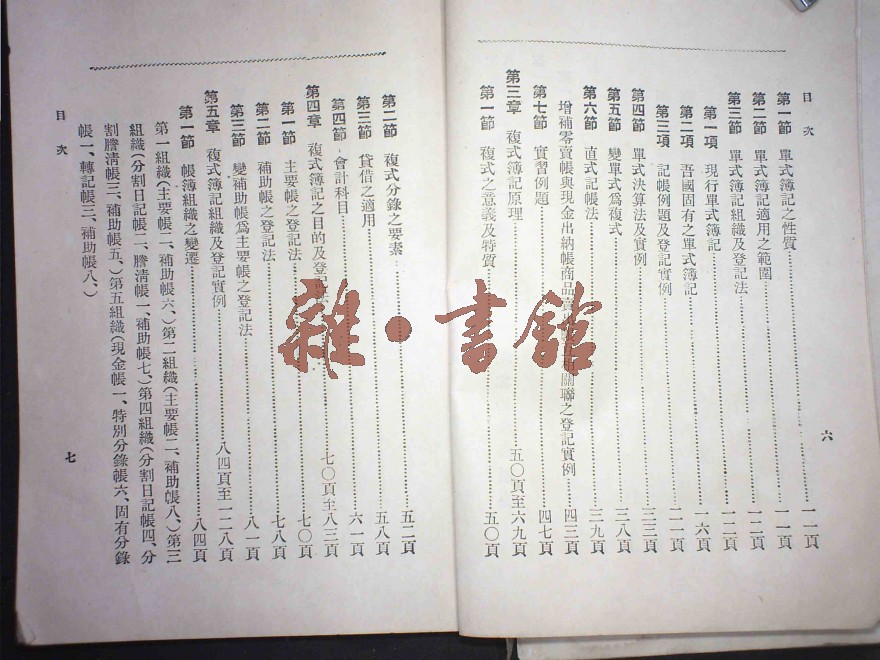 目次
六
第一節 單式簿記之性質……一一頁
第二節 單式簿記適用之範圍……一一頁
第三節 單式簿記組織及登記法……一二頁
第一項 現行單式簿記……一六頁
第二項 吾國固有之單式簿記……二一頁
第三項 記帳例題及登記實例……二二頁
第四節 單式決算法及實例……三三頁
第五節 變單式爲複式……三八頁
第六節 直式記帳法……三九頁
增補零賣帳與現金出納帳商品 關聯之登記實例……四三頁
第七節 實習例題……四七頁
第三章 複式簿記原理……五〇頁至六九頁
第一節 複式之意義及特質……五〇頁
第二節 複式分錄之要素……五二頁
第三節 貸借之適用……五八頁
第四節 會計科目……六一頁
第四章 複式簿記之目的及登記法……七〇頁至八三頁
第一節 主要帳之登記法……七〇頁
第二節 補助帳之登記法……七八頁
第三節 變補助帳爲主要帳之登記法……八一頁
第五章 複式簿記組織及登記實例……八四頁至一二八頁
第一節 帳簿組織之變遷……八四頁
第一組織(主要帳二、補助帳六、)第二組織(主要帳二、補助帳八、)第三
組織(分割日記帳二、謄清帳一、補助帳七、)第四組織(分割日記帳四、分
割謄清帳三、補助帳五、)第五組織(現金帳一、特別分錄帳六、固有分錄
帳一、轉記帳三、補助帳八、)
目次
七
雜·書館